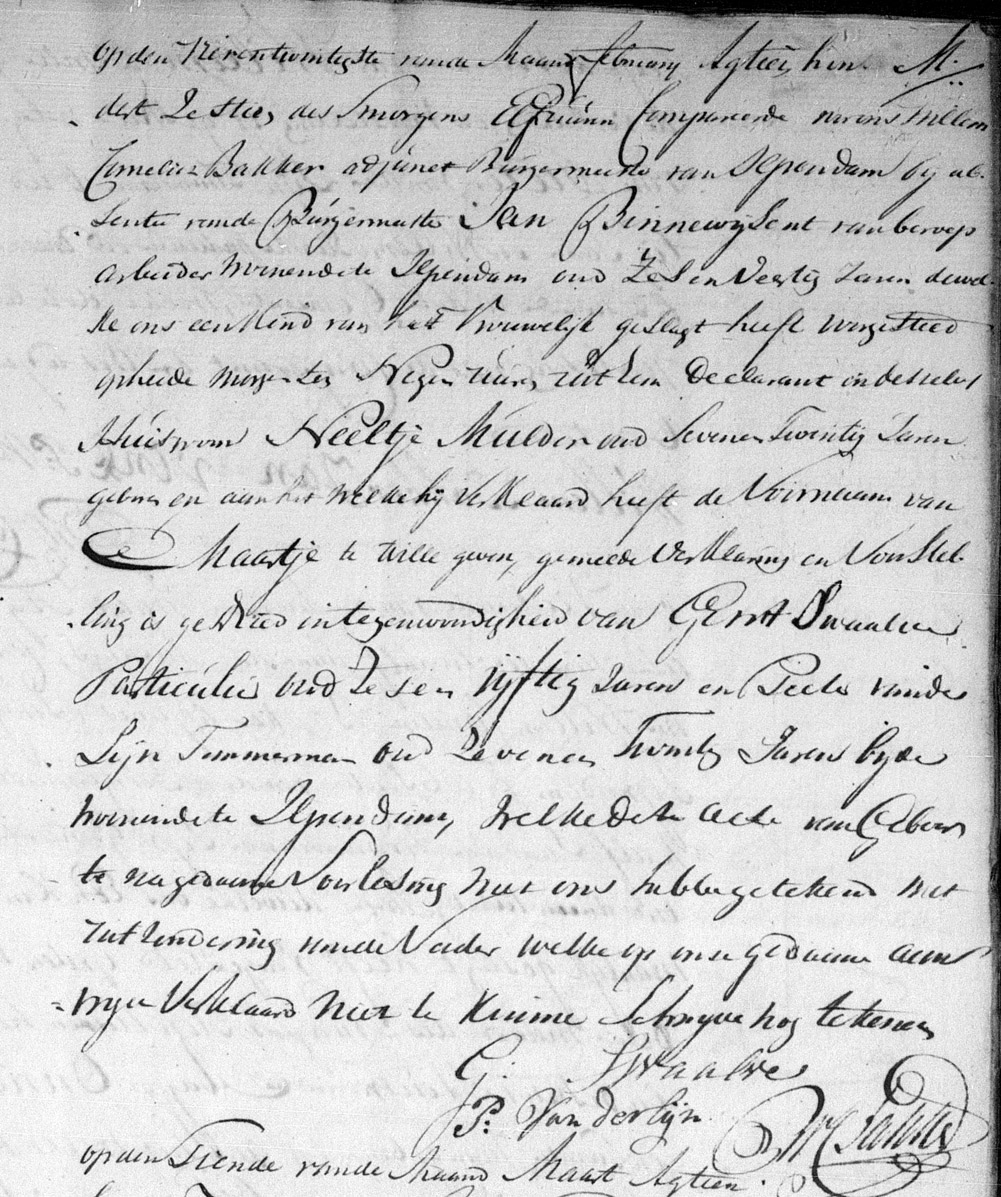 op den Vierentwintigste van de Maand February Agtien hon
dert Zestien des Smorgens Elf uuren Compareerde voor ons Willem
Cornelisz Bakker adjunct Burgermeester van Ilpendam by ab-
sentie van de Burgermeester Jan Binnewijsent van beroep
arbeider woonende te Ilpendam oud Zes en Veertig Jaren dewel-
ke ons een Kind van het Vrouwelijk geslagt heeft voorgesteld
op heden morgen ten Negen uuren uit hem Declarant en desselvs
Huisvrouw Neeltje Mulder oud Seven en Twintig Jaren
geboren en aan het welke hij Verklaard heeft de Voornaam van
Maartje te wille geven, gemelde Verklaring en Voorstel-
ling is geschied in tegenwoordigheid van Gerrit Swaalve
Particulier oud Zes en vijftig Jaren en Pieter van der
Lijn Timmerman oud Zeven en Twintig Jaren byde
woonende te Ilpendam, welke dete acte van Geboor
te na gedaane Voorlesing met ons hebbe getekend met
uitzondering van de Vader welke op onse gedaane aan
vrage Verklaard niet te Kunne Schryve nog tekenen
G. Swaalve
P. Van der Lijn
WC Bakker
op den Tiende van de Maand Maart Agtien